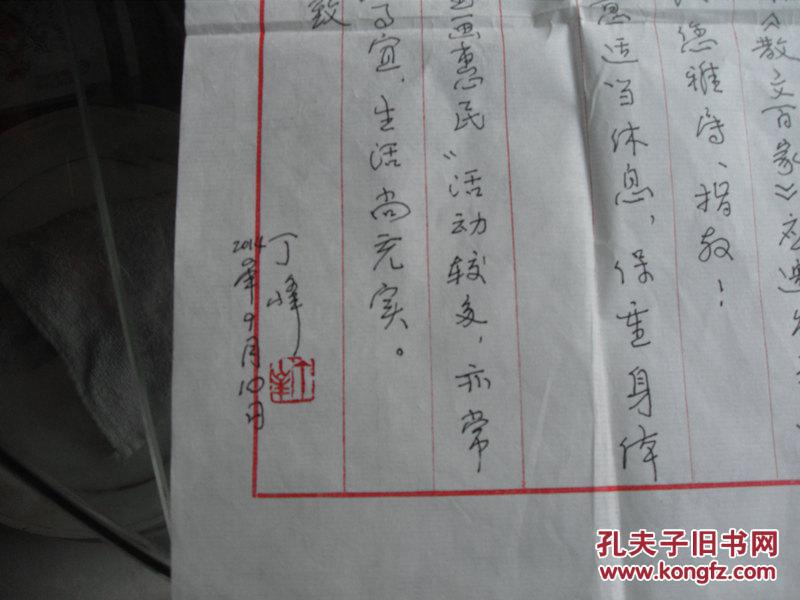 《散文百家》应邀发
德雅府、指教！
适当休息，保重身体
画惠民”活动较多，亦常
宜，生活尚充实。
致
丁峰
2014年9月10日
孔夫子旧书网
www.kongfz.com